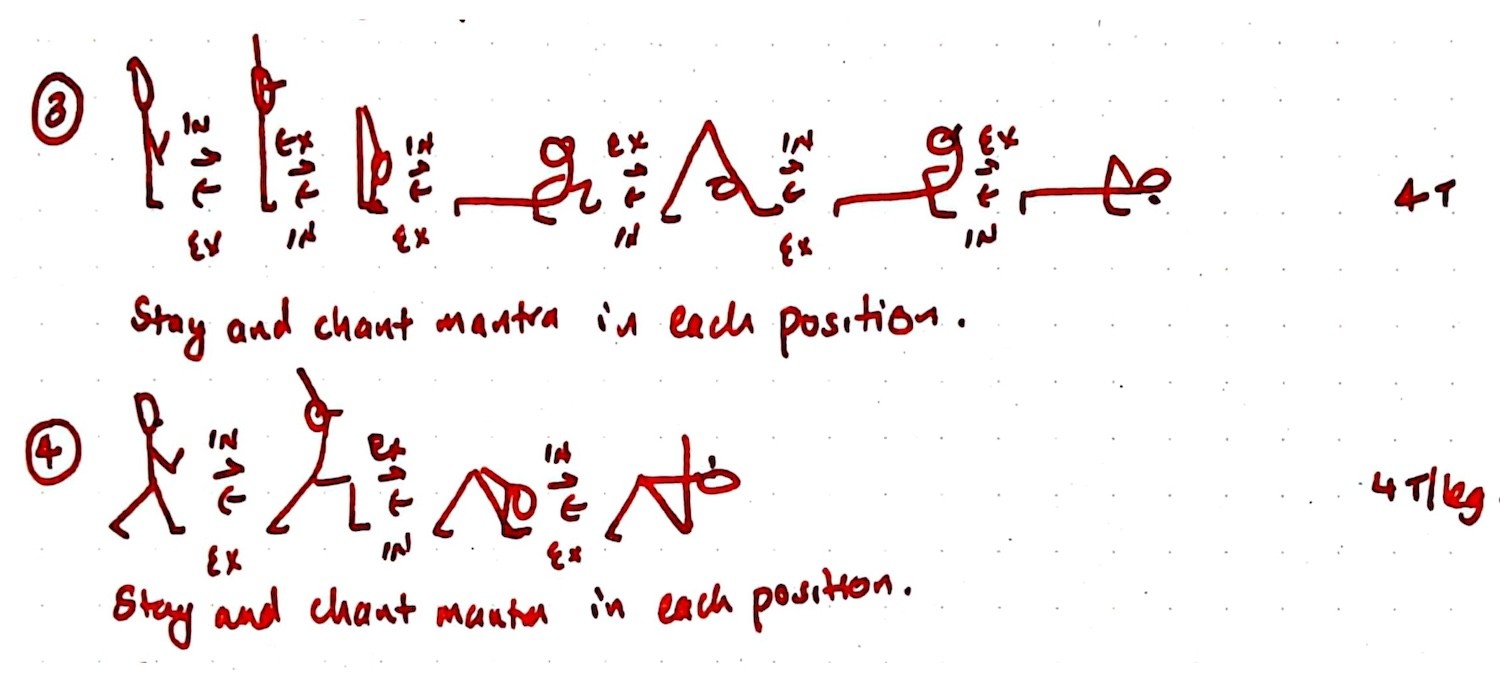 3 IN EX IN EX IN EX 4T
EX IN EX IN EX IN
Stay and chant mantra in each position.
4 IN EX IN 4T/leg.
EX IN EX
Stay and chant mantra in each position.